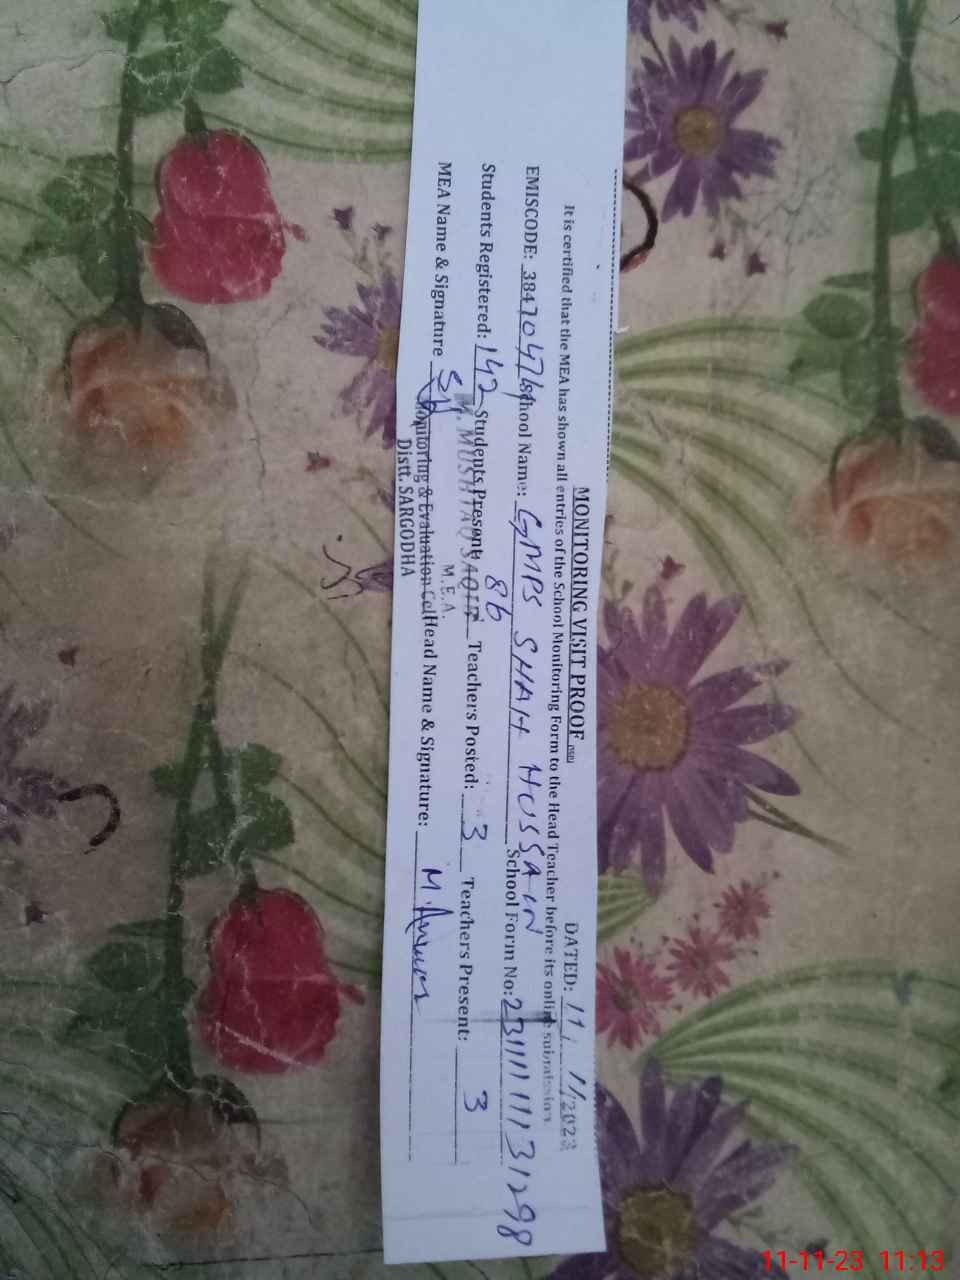 MONITORING VISIT PROOF (MEP) DATED: 11/11/2023
It is certified that the MEA has shown all entries of the School Monitoring Form to the Head Teacher before its online submission.
EMISCODE: 38470474 School Name: GMPS SHAH HUSSAIN School Form No: 23111111131298
Students Registered: 142 Students Present: 86 Teachers Posted: 3 Teachers Present: 3
M. MUSHTAQ SAQIB
M.E.A.
MEA Name & Signature Head Name & Signature: M. Anwar
Monitoring & Evaluation Cell
Distt. SARGODHA
11-11-23 11:13